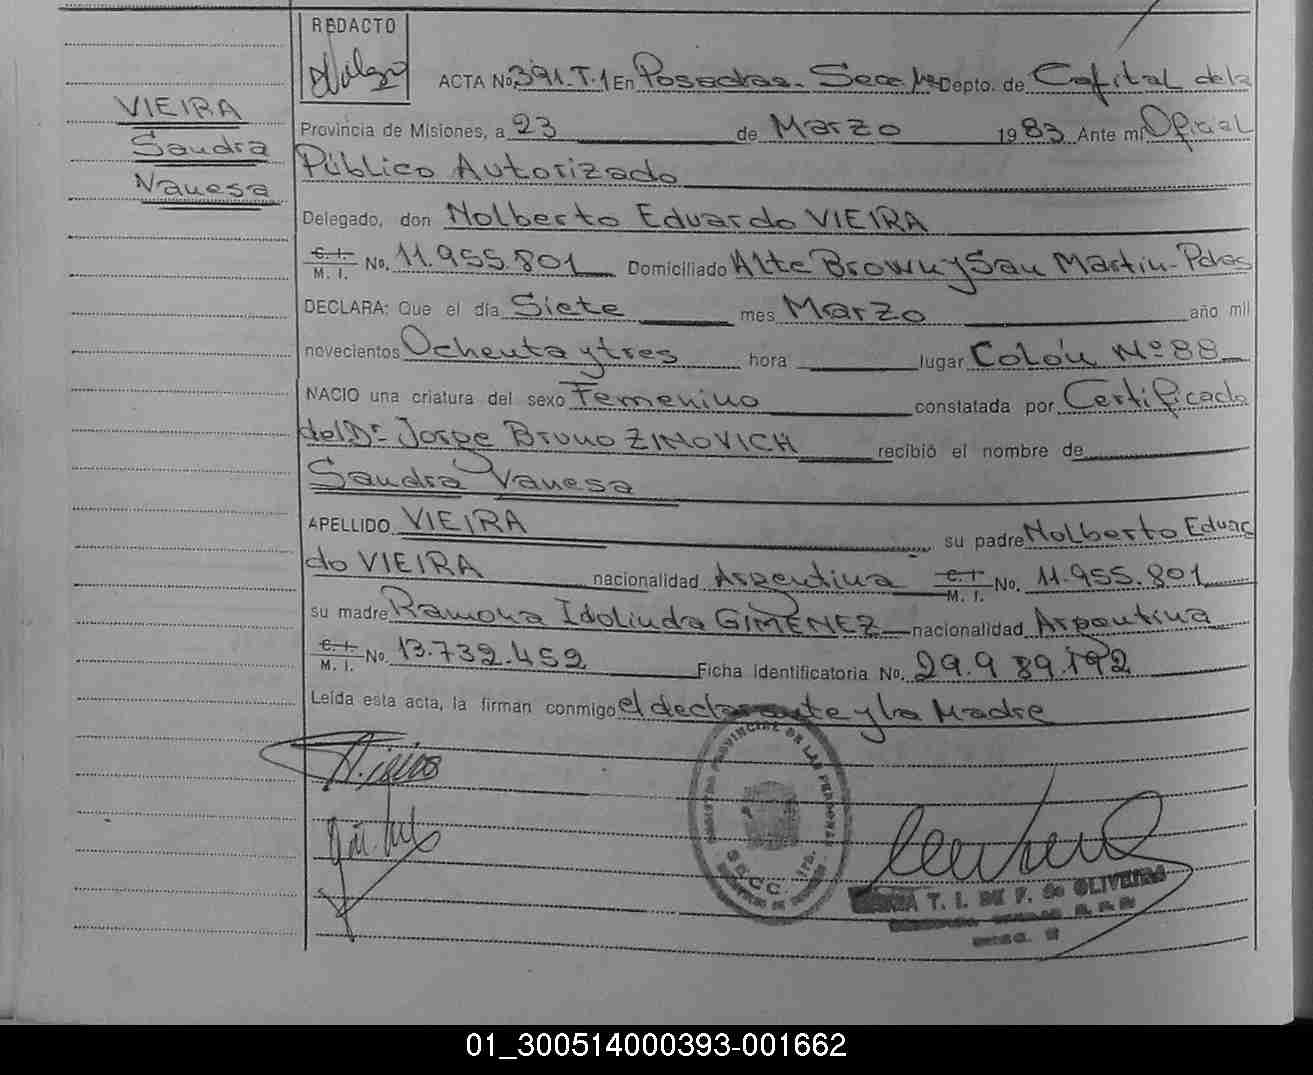 REDACTO
ACTA No 391.T.1 En Posadas. Secc. 1ra Depto. de Capital de la
VIEIRA
Sandra
Vanesa
Provincia de Misiones, a 23 de Marzo 1983 Ante mi Oficial
Público Autorizado
Delegado, don Nolberto Eduardo VIEIRA
C. I.
M. I. No. 11.955.801 Domiciliado Alte Brown y San Martin-Pdas
DECLARA: Que el día Siete mes Marzo año mil
novecientos Ochenta y tres hora lugar Colón Nº 88
NACIO una criatura del sexo Femenino constatada por Certificado
del Dr. Jorge Bruno ZINOVICH recibió el nombre de
Sandra Vanesa
APELLIDO VIEIRA su padre Nolberto Eduar
do VIEIRA nacionalidad Argentina C. I. M. I. No. 11.955.801
su madre Ramona Idolinda GIMENEZ nacionalidad Argentina
C. I.
M. I. No. 13.732.452 Ficha identificatoria No. 29.989.192
Leída esta acta, la firman conmigo el declarante y la Madre
REGISTRO PROVINCIAL DE LAS PERSONAS
SECC. 1ra.
T. I. DE F. de OLIVEIRA
01_300514000393-001662